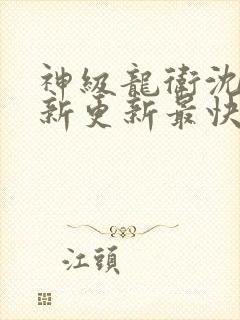 神級龍衛沈
新更新最快
江頭